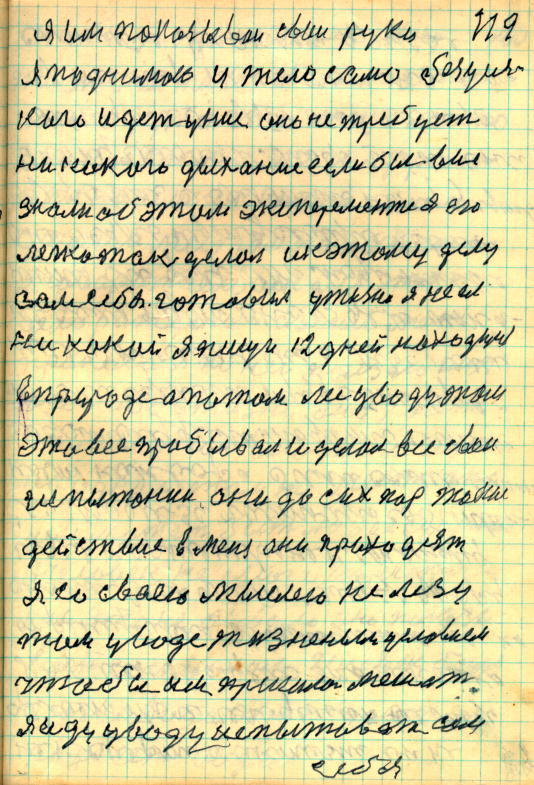 я им показывал свои руки 119
я поднимаю и тело само безуся-
кого идет уние оно не требует
ни кокого дыхание если бы вы
знали об этом эксперементе я его
лежа так делал и к этому делу
сам себя готовил ужено я не ел
ни кокой я пищи 12 дней находился
в природе а потом лез у воду там
это все пробывал и делал все свои
испытании они до сих пор такие
действие в меня они проходят
я со своею мыслею не лезу
там у воде жизненым условием
чтобы им пришлл мешат
я иду у воду испытоват сам
себя